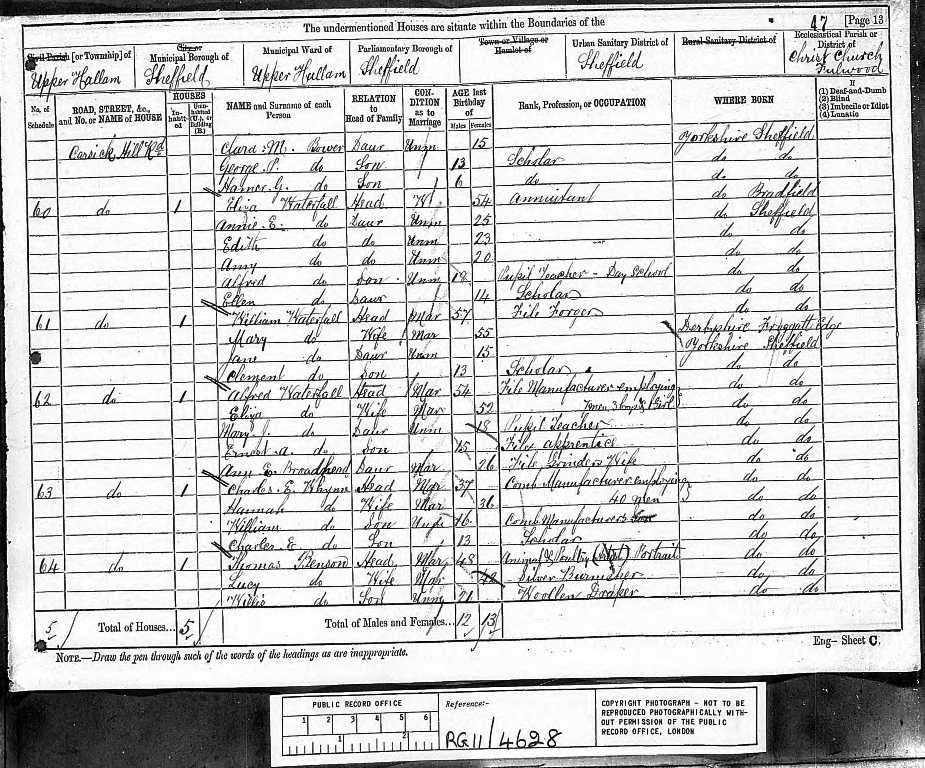 The undermentioned Houses are situate within the Boundaries of the
47 [Page 13
Civil Parish [or Township] of
Upper Hallam
City or Municipal Borough of
Sheffield
Municipal Ward of
Upper Hallam
Parliamentary Borough of
Sheffield
Town or Village or Hamlet of
Urban Sanitary District of
Sheffield
Rural Sanitary District of
Ecclesiastical Parish or District of
Christ Church Fulwood
No. of Schedule
ROAD, STREET, &c., and No. or NAME of HOUSE
HOUSES
Inhabited
Uninhabited (U.), or Building (B.)
NAME and Surname of each Person
RELATION to Head of Family
CONDITION as to Marriage
AGE last Birthday of
Males Females
Rank, Profession, or OCCUPATION
WHERE BORN
If
(1) Deaf-and-Dumb
(2) Blind
(3) Imbecile or Idiot
(4) Lunatic
Carsick Hill Rd Clara M. Bower Daur Unm 15 Yorkshire Sheffield
George P. do Son 13 Scholar do do
Hamer G. do Son 6 do do do
60 do 1 Eliza Waterfall Head W 54 Annuitant do Bradfield
Annie E. do Daur Unm 25 do Sheffield
Edith do do Unm 23 do do
Amy do do Unm 20 do do
Alfred do Son Unm 18 Pupil Teacher - Day School do do
Ellen do Daur 14 Scholar do do
61 do 1 William Waterfall Head Mar 57 File Forger do do
Mary do Wife Mar 55 Derbyshire Froggatt Edge
Jane do Daur Unm 15 Yorkshire Sheffield
Clement do Son 13 Scholar do do
62 do 1 Alfred Waterfall Head Mar 54 File Manufacturer employing do do
Eliza do Wife Mar 52 men, 3 boys & 1 Girl do do
Mary J. do Daur Unm 18 Pupil Teacher do do
Ernest A. do Son 15 File apprentice do do
Ann E. Broadhead Daur Mar 26 File Grinders Wife do do
63 do 1 Charles E. Head Mar 37 Comb Manufacturer employing do do
Hannah do Wife Mar 36 40 men do do
William do Son Unm 16 Comb Manufacturers Son do do
Charles E do Son 13 Scholar do do
64 do 1 Thomas Benson Head Mar 48 Animal & Poultry Portrait do do
Lucy do Wife Mar 48 Silver do do
Willie do Son Unm 21 Woollen Draper do do
5 Total of Houses... 5 Total of Males and Females... 12 13
NOTE.—Draw the pen through such of the words of the headings as are inappropriate.
Eng— Sheet C.
PUBLIC RECORD OFFICE
1 2 3 4 5 6
1 2
Reference:-
RG11/4628
COPYRIGHT PHOTOGRAPH - NOT TO BE
REPRODUCED PHOTOGRAPHICALLY WITH-
OUT PERMISSION OF THE PUBLIC
RECORD OFFICE, LONDON